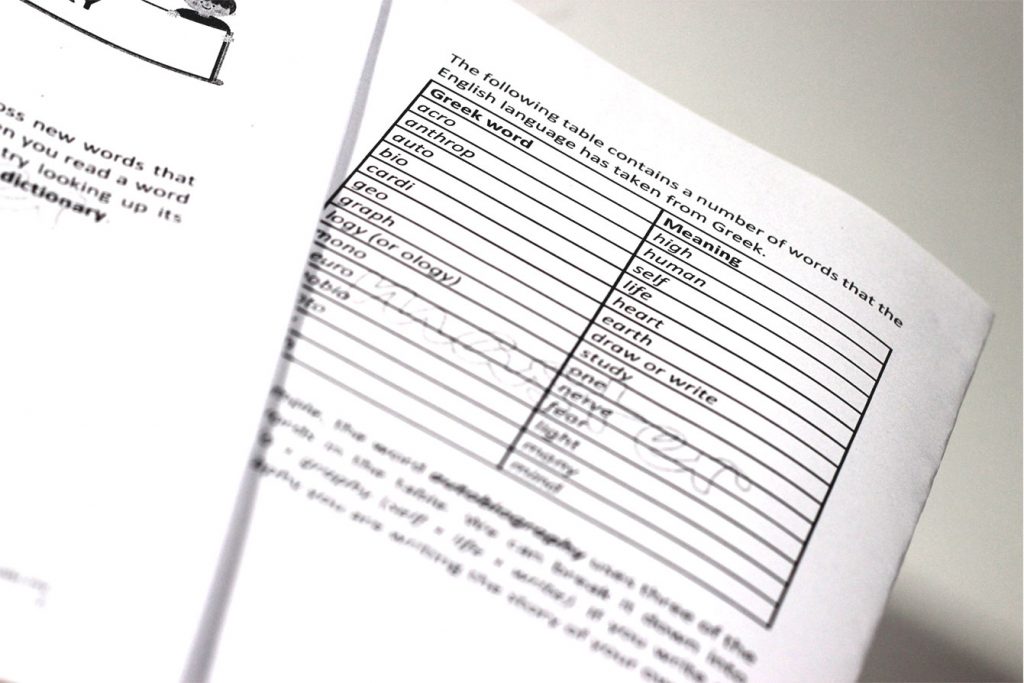 Y
oss new words that
en you read a word
try looking up its
dictionary.
The following table contains a number of words that the
English language has taken from Greek.
Greek word Meaning
acro high
anthrop human
auto self
bio life
cardi heart
geo earth
graph draw or write
logy (or ology) study
mono one
euro nerve
obia fear
oto light
many
mind
the word autobiography uses three of the
in the table. We can break it down into
+ graphy (self + life + write). If you write
you are writing the story of your